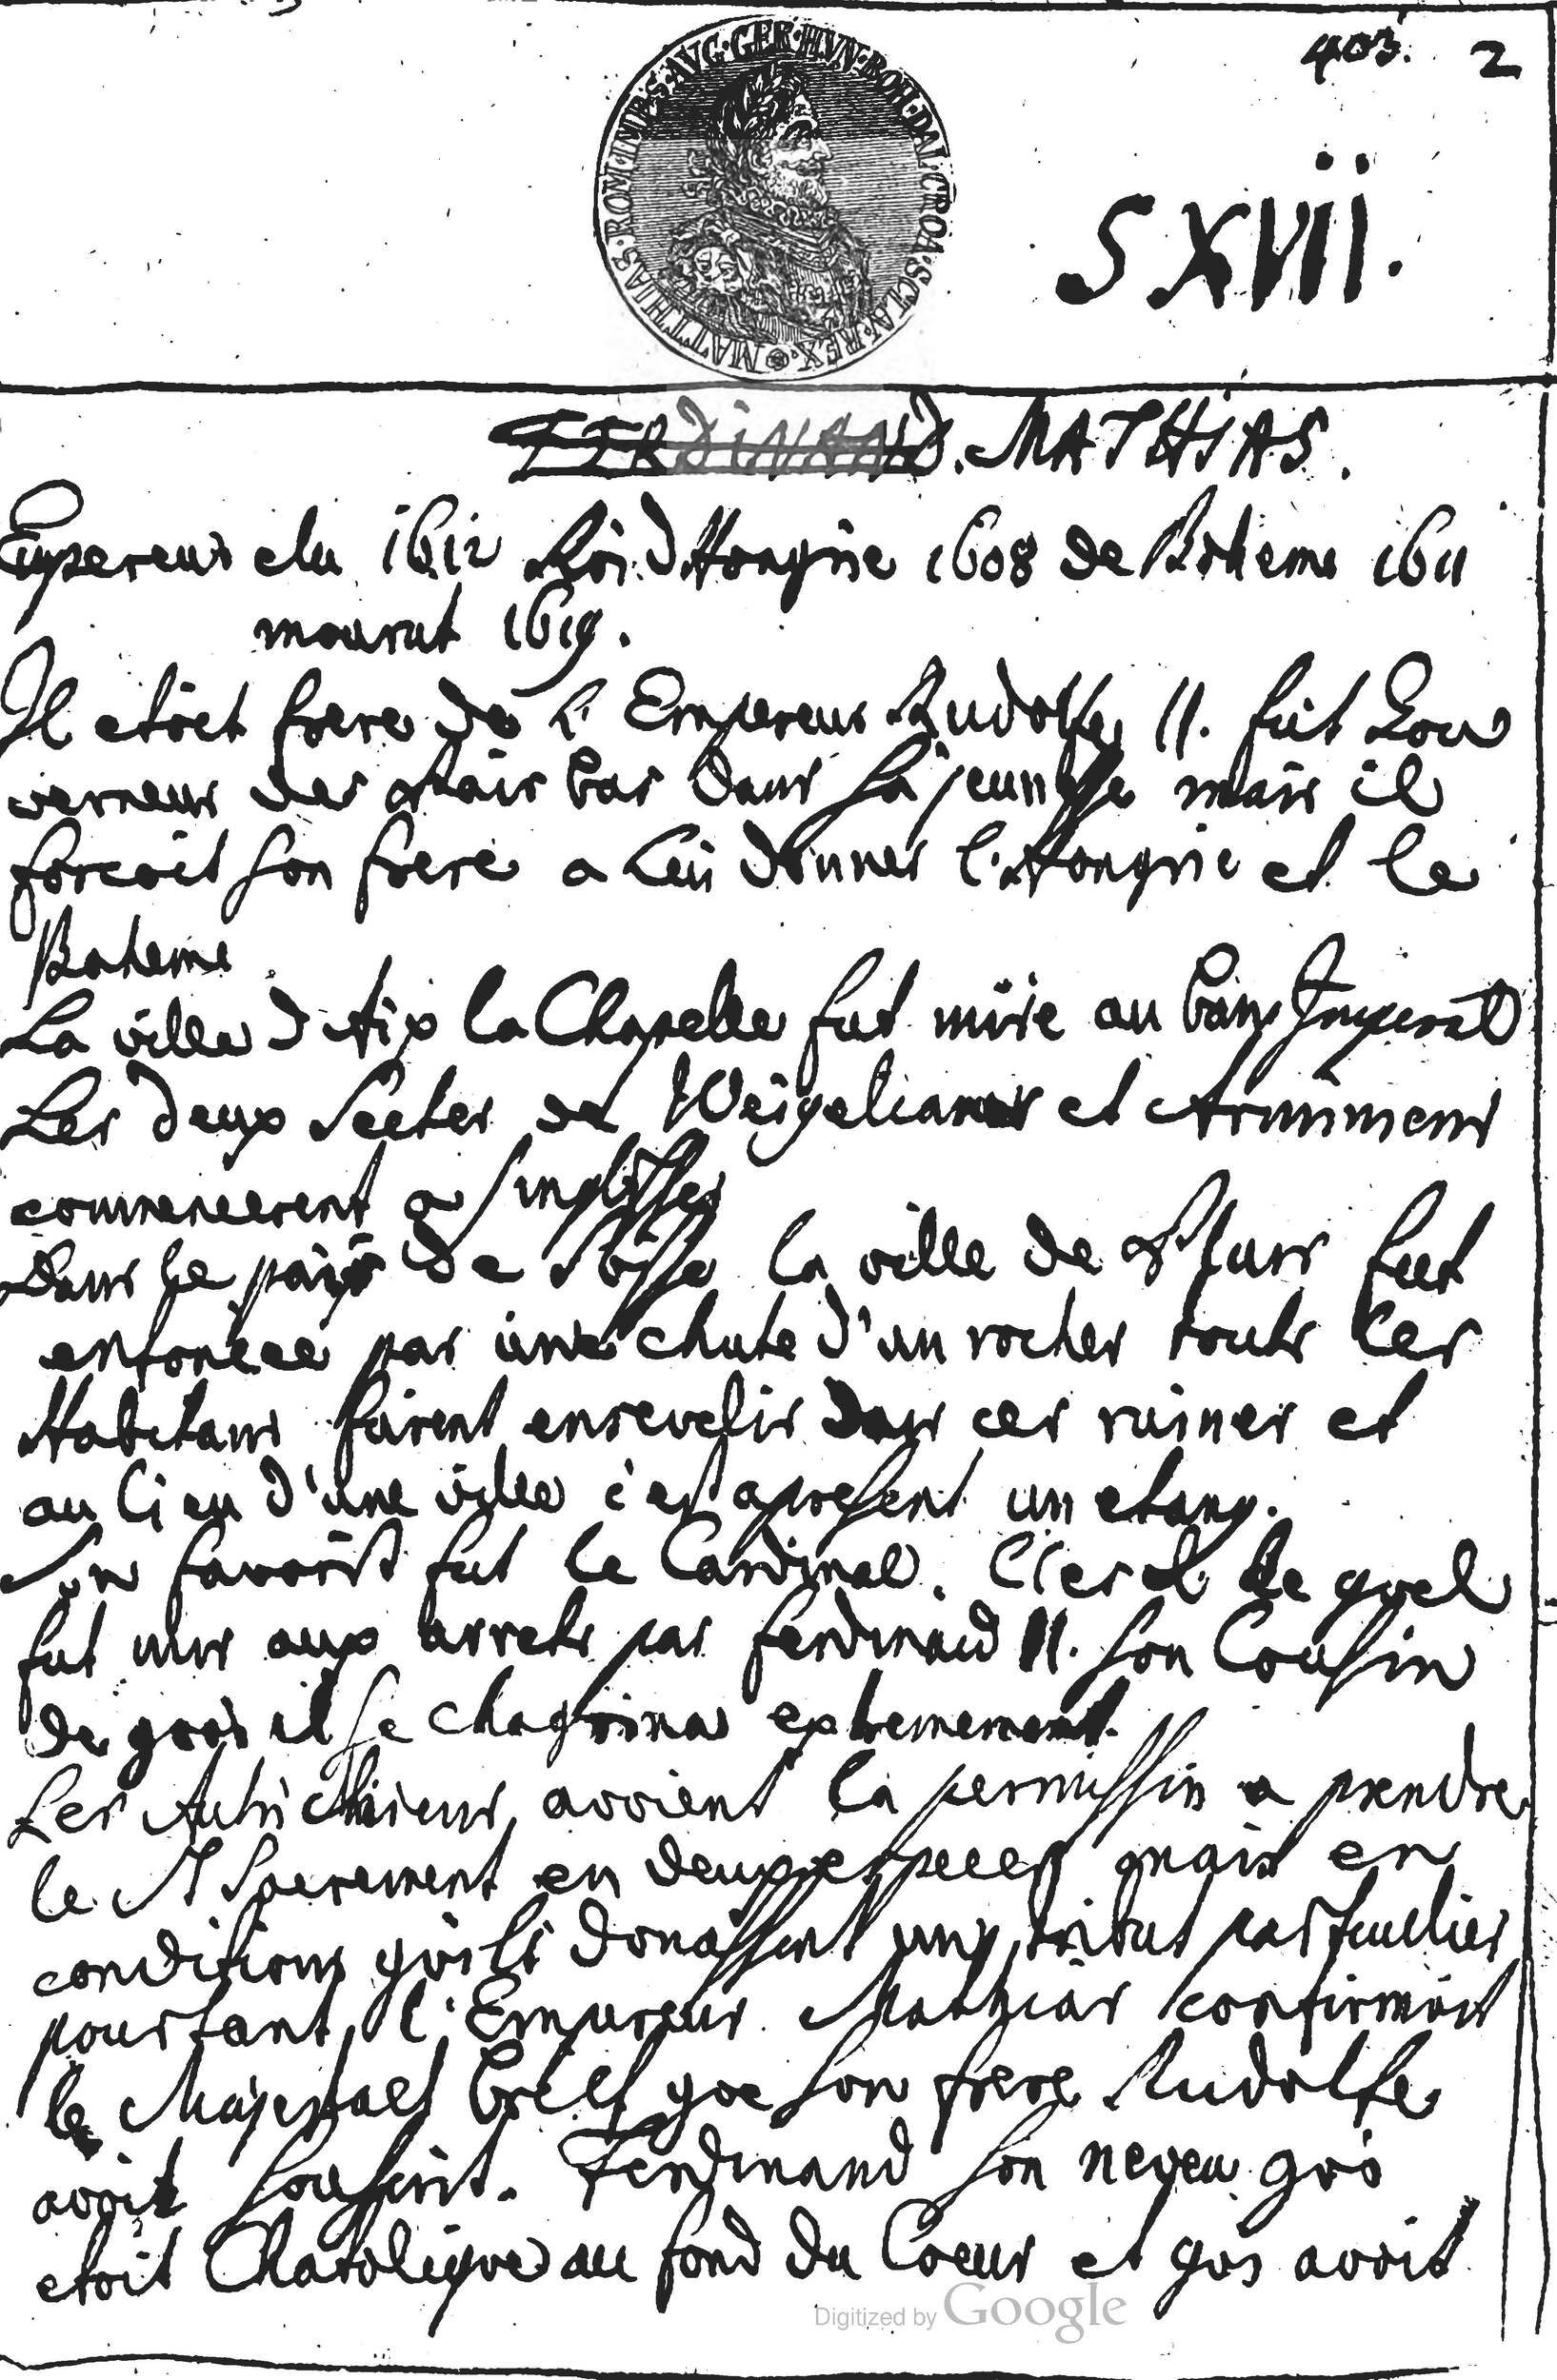 403. 2
MATTHIAS·ROM·IMP·S·AVG·GER·HVN·BOH·DAL·CROA·SCLA·REX·
S XVII.
FERDINAND. MATHIAS.
Empereur elu 1612 Roi d Hongrie 1608 de Boheme 1611
mourut 1619.
Il etoit frere de l'Empereur Rudolfe II. fut Gou
verneur des Pais bas dans sa jeunesse mais il
forcoit son frere a lui donner l'Hongrie et le
Boheme
La ville d Aix la Chapelle fut mise au ban Imperial
Les deux Sectes de Weigelianer et Arminiens
commencerent a
Dans le païs de la ville de Plurs fut
enfoncee par une chute d'un rocher touts les
Habitans furent ensevelis dans ces ruines et
au lieu d'une ville c'est apresent un etang.
Son favorit fut le Cardinal. Clesel le quel
fut mis aux arrets par Ferdinand II. son Cousin
de quoi il se chagrina extremement.
Les Autrichiens avoient la permission a prendre
le St Sacrement en deux especes mais en
conditions qu'ils donassent un tribut particulier
pourtant l'Empereur Mathias confirmoit
le Majestaet Brief que son frere Rudolfe
avoit souscrit. Ferdinand son neveu qui
etoit Chatolique au fond du Coeur et qui avoit
Digitized by Google